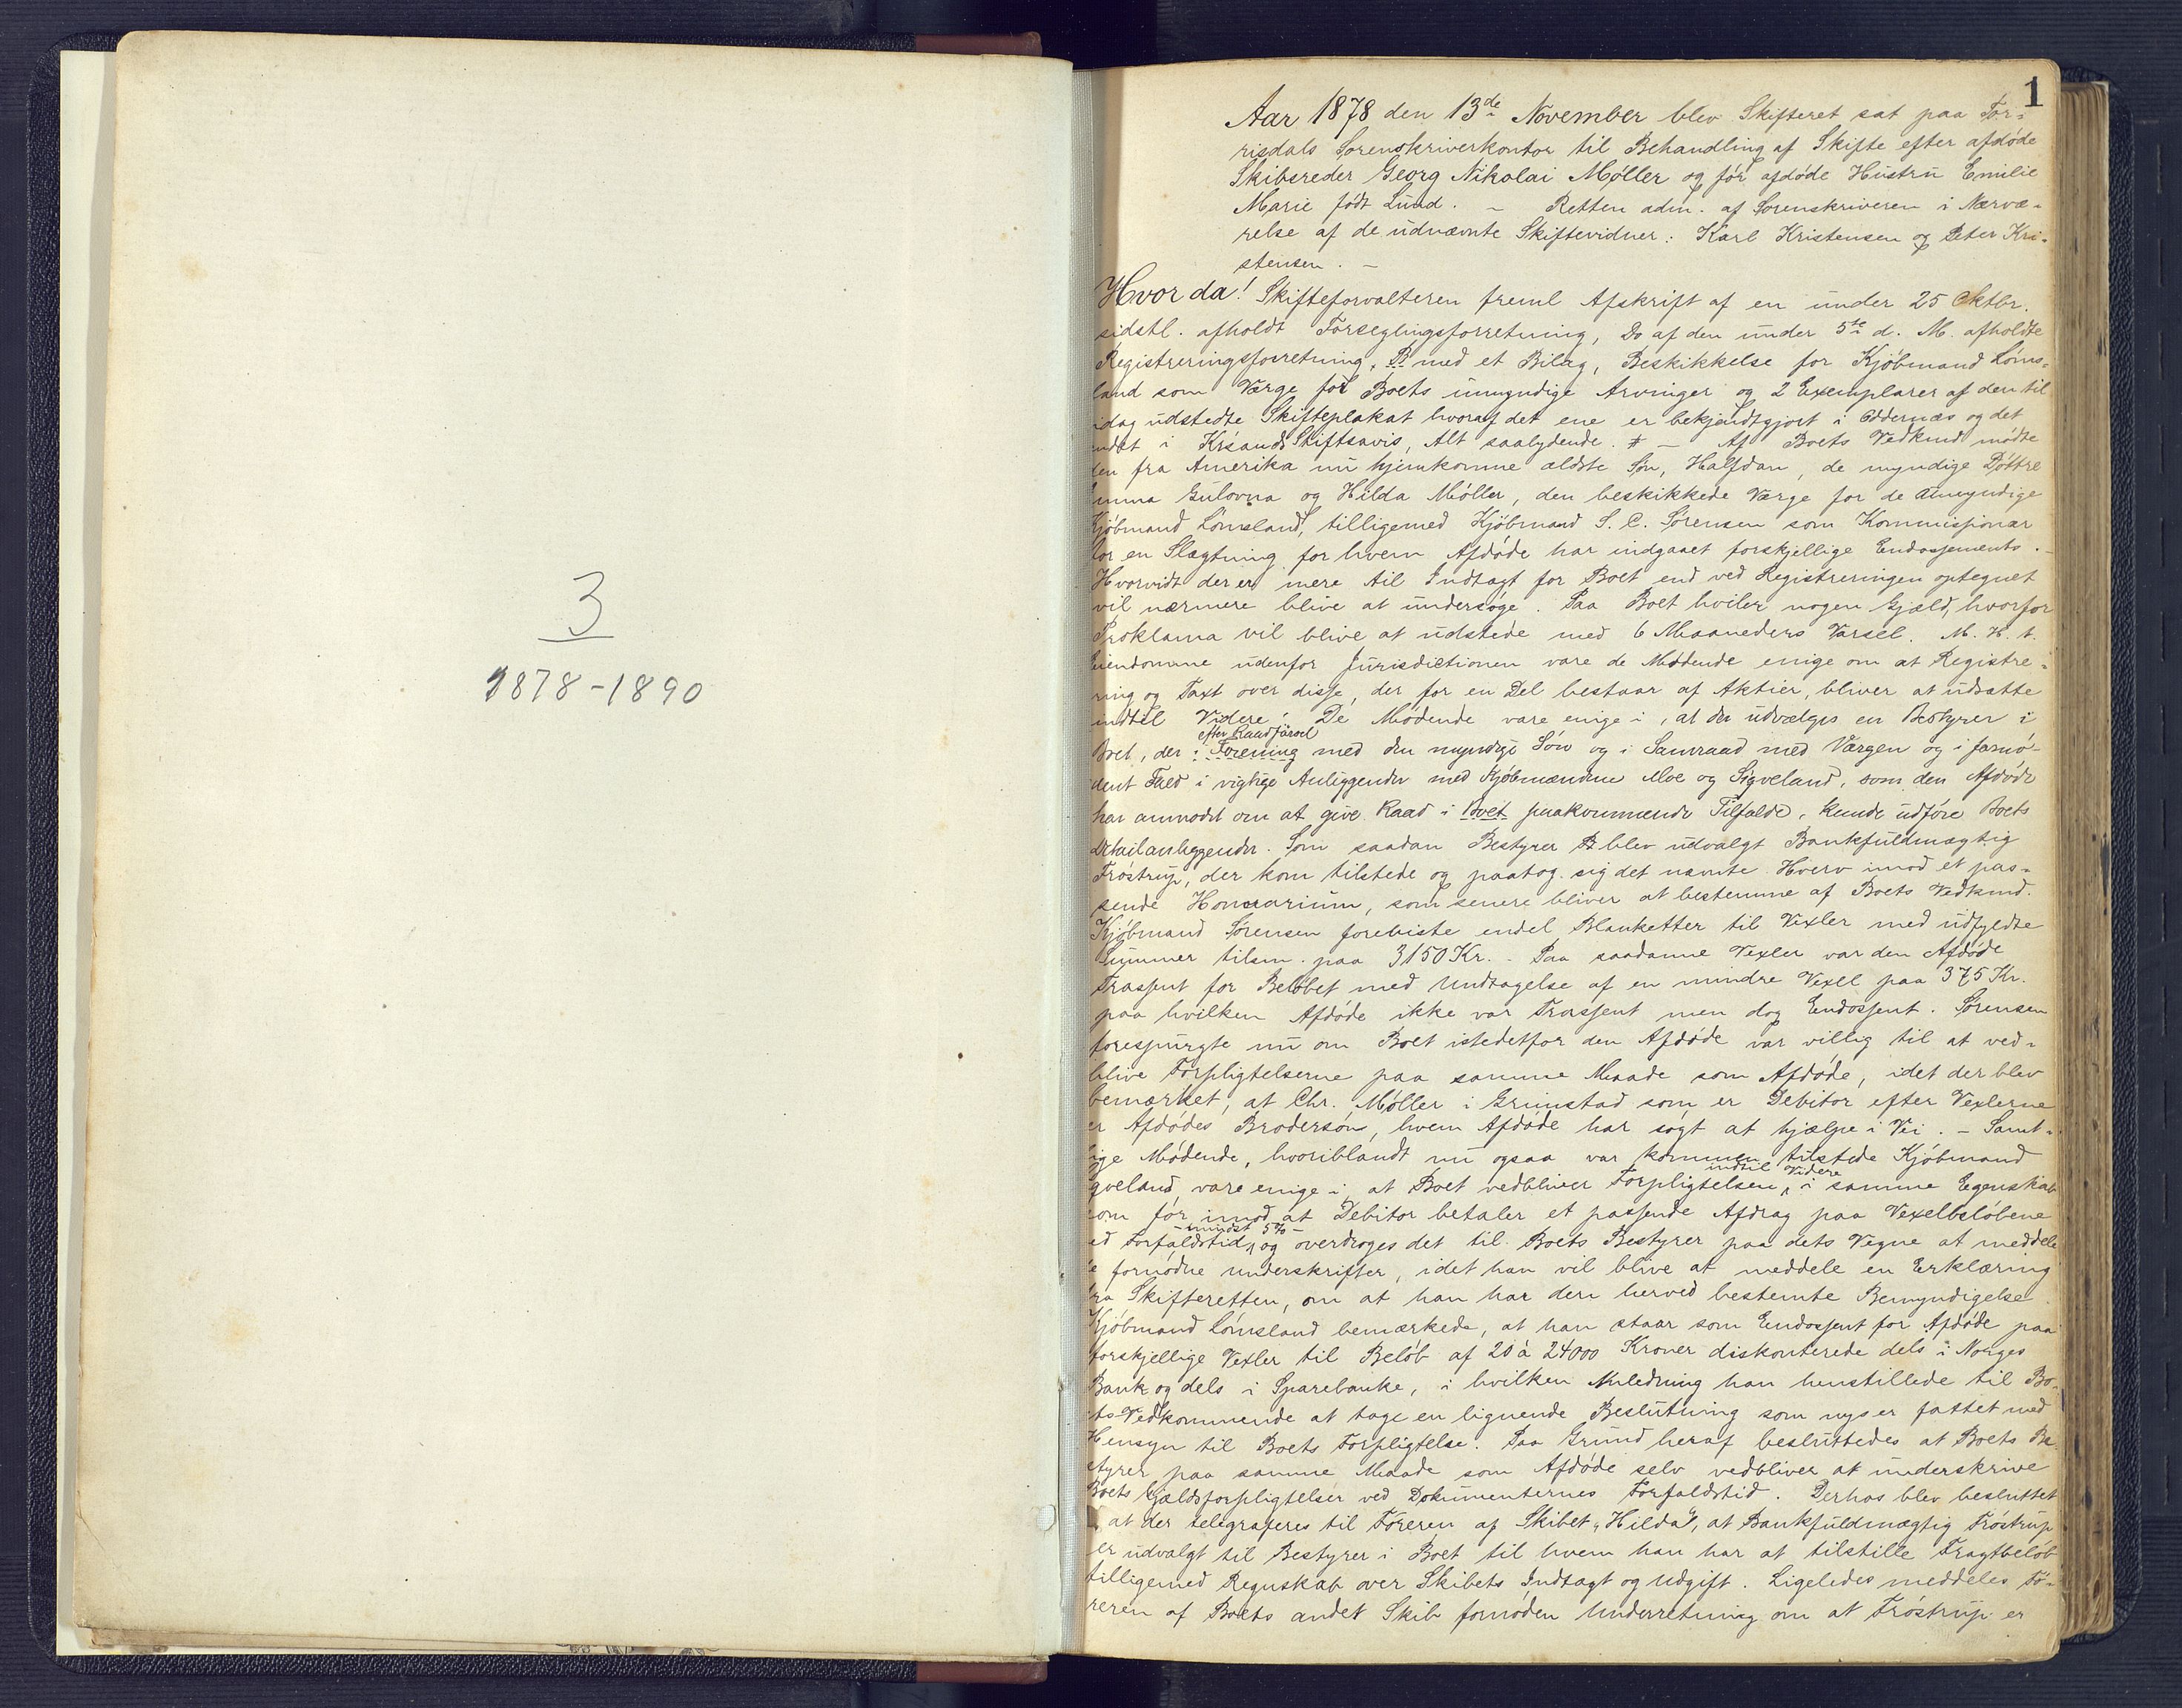 3
1878-1890
1
Aar 1878 den 13de November blev Skifteret sat paa Tor=
risdals Sorenskriverkontor til Behandling af Skifte efter afdøde
Skibsreder Georg Nikolai Møller og før afdøde Hustru Emilie
Marie født Lund. – Retten adm. af Sorenskriveren i Nærvæ-
relse af de udnævnte Skiftevidner: Karl Kristensen og Peter Kri-
stensen. –
Hvor da! Skifteforvalteren freml Afskrift af en under 25 Oktbr.
sidstl. afholdt Forseglingsforretning, Do af den under 5te d. M. afholdte
Registreringsforretning, med et Bilag, Beskikkelse for Kjøbmand Løms-
land som Værge for Boets umyndige Arvinger og 2 Exemplarer af den til
idag udstedte Skifteplakat hvoraf det ene er bekjendtgjort i Oddernæs og det
andet i Krsands Stiftsavis, Alt saalydende. # – Af Boets Vedkmd mødte
den fra Amerika nu hjemkomne ældste Søn, Halfdan, de myndige Døttre
Emma Gulovna og Hilda Møller, den beskikkede Værge for de Umyndige
Kjøbmand Lømsland, tilligemed Kjøbmand S. C. Sørensen som Kommissjonær
for en Slægtning for hvem Afdøde har indgaaet forskjellige Endossements. –
Hvorvidt der er mere til Indtægt for Boet end ved Registreringen optegnet
vil nærmere blive at undersøge. Paa Boet hviler nogen Gjæld, hvorfor
Proklama vil blive at udstede med 6 Maaneders Varsel. M. H. t.
Eiendomme udenfor Jurisdictionen vare de Mødende enige om at Registre-
ring og Taxt over disse, der for en Del bestaar af Aktier, bliver at udsætte
indtil Videre. De Mødende vare enige i, at der udvælges en Bestyrer i
efter Raadførsel
Boet, der i Forening med den myndige Søn og i Samraad med Værgen og i fornø-
dent Fald i vigtige Anliggender med Kjøbmændene Moe og Sigveland, som den Afdøde
har anmodet om at give Raad i Boet paakommende Tilfælde, kunde udføre Boets
Detailanliggender. Som saadan Bestyrer blev udvalgt Bankfuldmægtig
Frøstrup, der kom tilstede og paatog sig det nævnte Hverv imod et pas-
sende Honorarium, som senere bliver at bestemme af Boets Vedkmd.
Kjøbmand Sørensen foreviste endel Blanketter til Vexler med udfyldte
Summer tilsm. paa 3150 Kr. – Paa saadanne Vexler var den Afdøde
Trassent for Beløbet med Undtagelse af en mindre Vexel paa 375 Kr.
paa hvilken Afdøde ikke var Trassent men dog Endossent. Sørensen
forespurgte nu om Boet istedetfor den Afdøde var villig til at ved-
blive Forpligtelserne paa samme Maade som Afdøde, idet der blev
bemærket, at Chr. Møller i Grimstad som er Debitor efter Vexlerne
er Afdødes Brodersøn, hvem Afdøde har søgt at hjælpe i Vei. – Samt-
lige Mødende, hvoriblandt nu ogsaa var kommen tilstede Kjøbmand
indtil Videre
Sigveland, vare enige i, at Boet vedbliver Forpligtelsen, i samme Egenskab
som før imod at Debitor betaler et passende Afdrag paa Vexelbeløbene
– mindst 5% –
ved Forfaldstid, og overdroges det til Boets Bestyrer paa dets Vegne at meddele
de fornødne Underskrifter, idet han vil blive at meddele en Erklæring
fra Skifteretten, om at han har den herved bestemte Bemyndigelse.
Kjøbmand Lømsland bemærkede, at han staar som Endossent for Afdøde paa
forskjellige Vexler til Beløb af 20 à 24000 Kroner diskonterede dels i Norges
Bank og dels i Sparebanke, i hvilken Anledning han henstillede til Bo-
ets Vedkommende at tage en lignende Beslutning som nys er fattet med
Hensyn til Boets Forpligtelse. Paa Grund heraf besluttedes at Boets Be-
styrer paa samme Maade som Afdøde selv vedbliver at underskrive
Boets Gjældsforpligtelser ved Dokumenternes Forfaldstid. Derhos blev besluttet
, at der telegraferes til Føreren af Skibet „Hilda“, at Bankfuldmægtig Frøstrup
er udvalgt til Bestyrer i Boet til hvem han har at tilstille Fragtbeløb
tilligemed Regnskab over Skibets Indtægt og Udgift. Ligeledes meddeles Fø-
reren af Boets andet Skib fornøden Underretning om at Frøstrup er